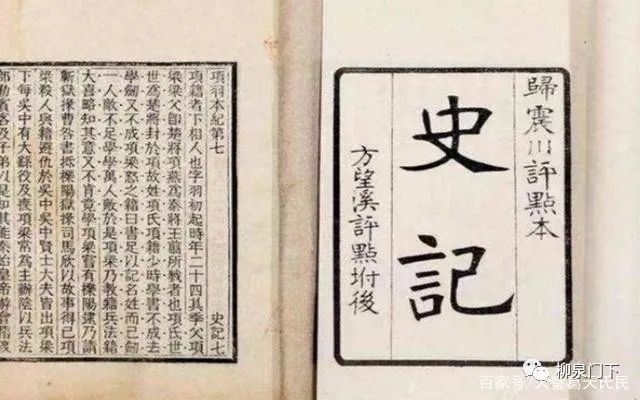 歸震川評點本
史記
方望溪評點坿後
項羽本紀第七 史記七
項籍者下相人也字羽初起時年二十四其季父項
梁梁父即楚將項燕為秦將王翦所戮者也項氏世
世為楚將封於項故姓項氏項籍少時學書不成去
學劍又不成項梁怒之籍曰書足以記名姓而已劍
一人敵不足學學萬人敵於是項梁乃教籍兵法籍
大喜略知其意又不肯竟學項梁嘗有櫟陽逮乃請
蘄獄掾曹咎書抵櫟陽獄掾司馬欣以故事得已項
梁殺人與籍避仇於吳中吳中賢士大夫皆出項梁
下每吳中有大繇役及喪項梁常為主辦陰以兵法
部勒賓客及子弟以是知其能秦始皇帝游會稽渡
柳泉门下
百家号/